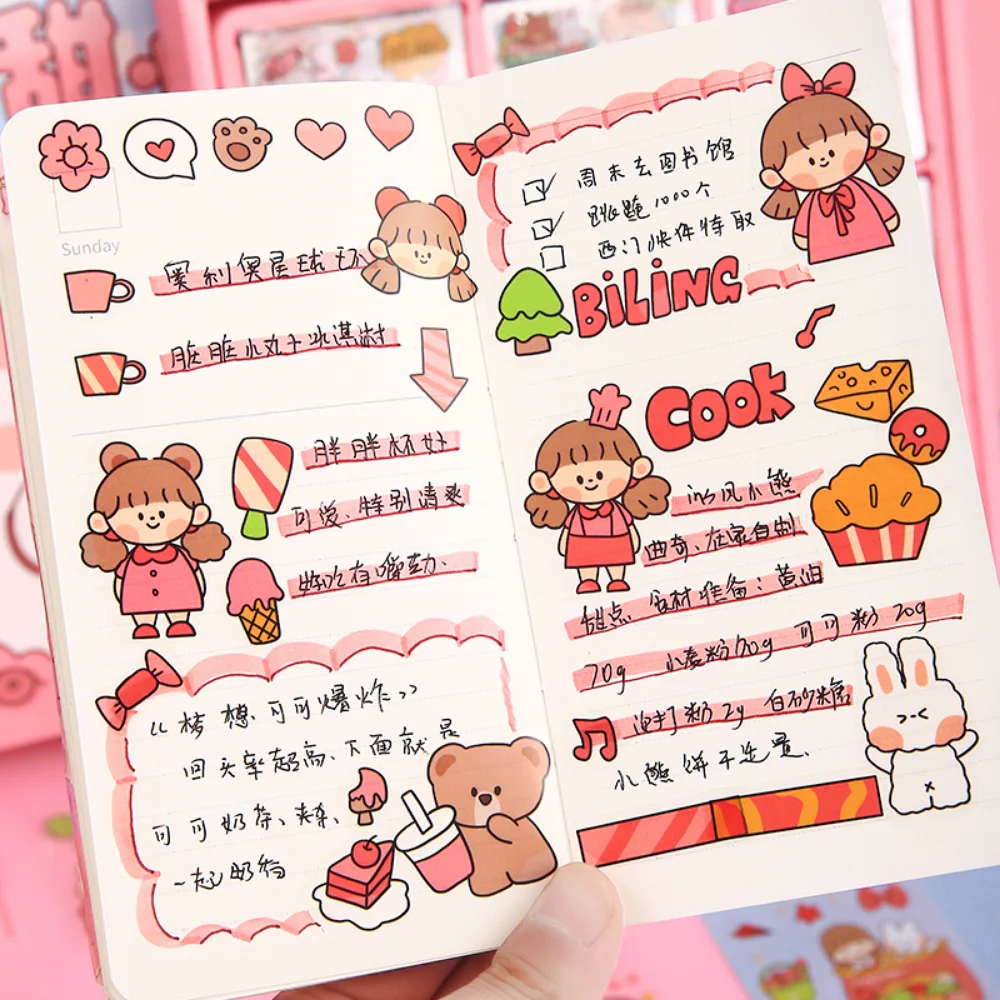 甜
Sunday
奥利奥星球切
脏脏小丸子冰淇淋
胖胖杯好
可爱、特别清爽
好吃有嚼劲、
“梦想可可爆炸”
回头率超高、下面就是
可可奶茶、
一起奶
周末去图书馆
跳绳1000个
西门快件待取
BiLiNG
COOK
小熊
曲奇、在家自制
甜点 食材准备：黄油
70g 小麦粉90g 可可粉20g
泡打粉2g 白砂糖
小熊饼干适量、